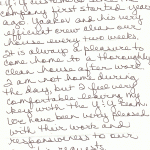 company first started years
ago. Yoskov and his very
efficient crew clean our
house every two weeks.
It is always a pleasure to
come home to a thoroughly
clean house after work.
I am not home during
the day, but I feel very
comfortable leaving my
key with the team.
We have been very pleased
with their work and
responsiveness to our
requests.